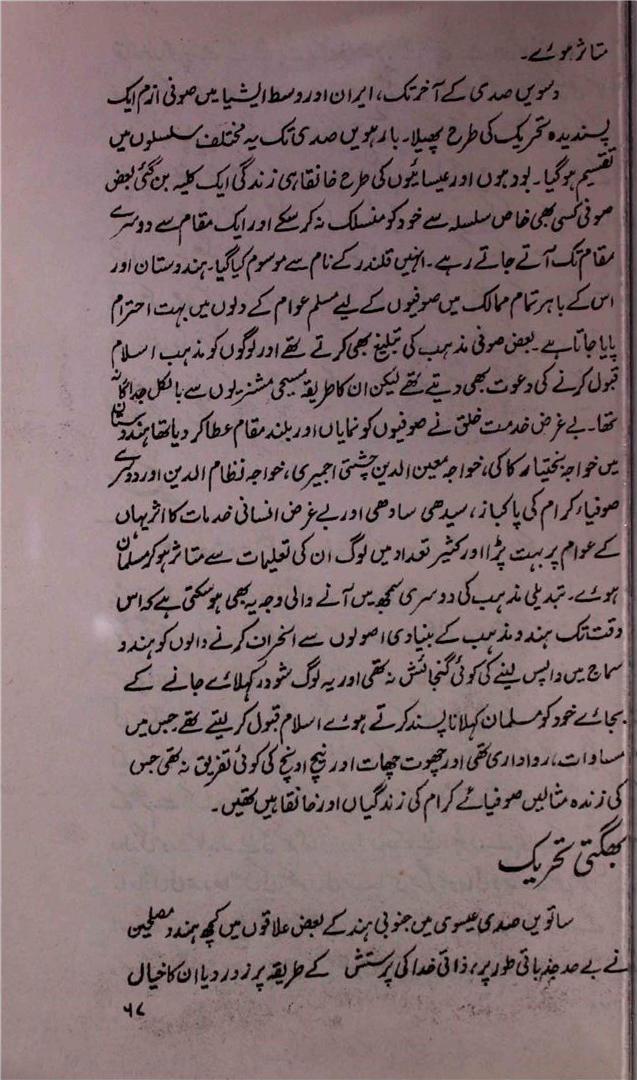 متاثر ہوئے۔
دسویں صدی کے آخر تک، ایران اور وسط ایشیا میں صوفی ازم ایک
پسندیدہ تحریک کی طرح پھیلا۔ بارھویں صدی تک یہ مختلف سلسلوں میں
تقسیم ہو گیا۔ بودھوں اور عیسائیوں کی طرح خانقاہی زندگی ایک کلیہ بن گئی بعض
صوفی کسی بھی خاص سلسلہ سے خود کو منسلک نہ کر سکے اور ایک مقام سے دوسرے
مقام تک آتے جاتے رہے۔ انہیں قلندر کے نام سے موسوم کیا گیا۔ ہندوستان اور
اس کے باہر تمام ممالک میں صوفیوں کے لیے مسلم عوام کے دلوں میں بہت احترام
پایا جاتا ہے۔ بعض صوفی مذہب کی تبلیغ بھی کرتے تھے اور لوگوں کو مذہب اسلام
قبول کرنے کی دعوت بھی دیتے تھے لیکن ان کا طریقہ مسیحی مشنریوں سے بالکل جداگانہ
تھا۔ بے غرض خدمت خلق نے صوفیوں کو نمایاں اور بلند مقام عطا کر دیا تھا ہندوستان
میں خواجہ بختیار کاکی، خواجہ معین الدین چشتی اجمیری، خواجہ نظام الدین اور دوسرے
صوفیاء کرام کی پاکباز، سیدھی سادھی اور بے غرض انسانی خدمات کا اثر یہاں
کے عوام پر بہت پڑا اور کثیر تعداد میں لوگ ان کی تعلیمات سے متاثر ہو کر مسلمان
ہوئے۔ تبدیلی مذہب کی دوسری سمجھ میں آنے والی وجہ یہ بھی ہو سکتی ہے کہ اس
وقت تک ہندو مذہب کے بنیادی اصولوں سے انحراف کرنے والوں کو ہندو
سماج میں واپس لینے کی کوئی گنجائش نہ تھی اور یہ لوگ شودر کہلائے جانے کے
بجائے خود کو مسلمان کہلانا پسند کرتے ہوئے اسلام قبول کر لیتے تھے جس میں
مساوات، رواداری تھی اور چھوت چھات اور نیچ اونچ کی کوئی تفریق نہ تھی جس
کی زندہ مثالیں صوفیائے کرام کی زندگیاں اور خانقاہیں تھیں۔
بھگتی تحریک
ساتویں صدی عیسوی میں جنوبی ہند کے بعض علاقوں میں کچھ ہندو مصلحین
نے بے حد جذباتی طور پر، ذاتی خدا کی پرستش کے طریقہ پر زور دیا ان کا خیال
۶۷